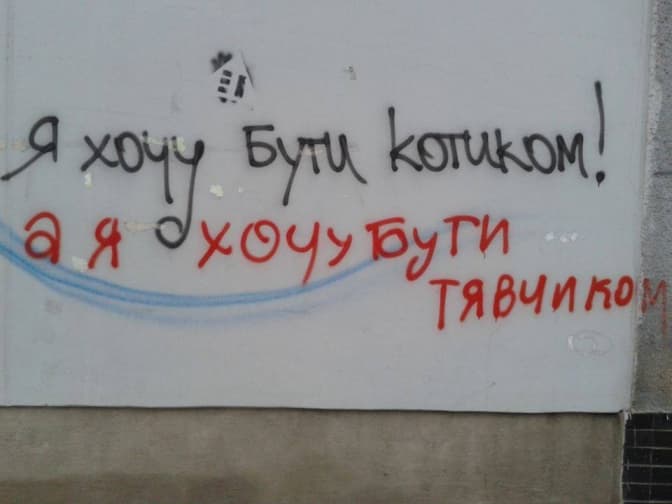 Я хочу бути котиком!
а я хочу бути
тявчиком